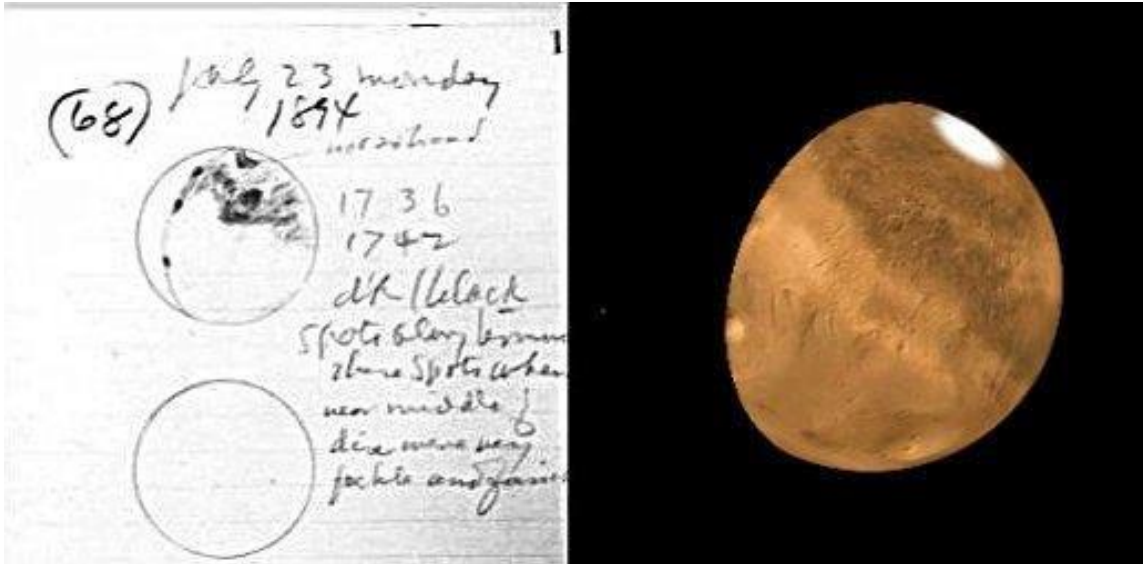 1
July 23 monday
(68) 1894
1736
1742
black
spots along
these spots when
near middle of
disc were very
and